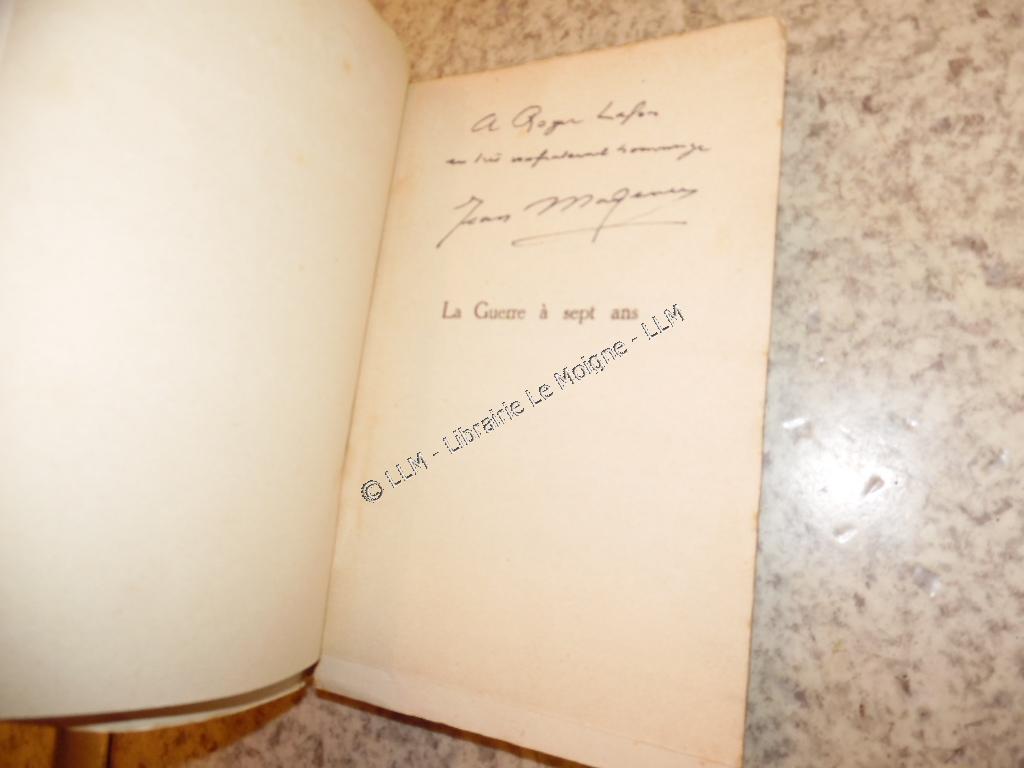 A Roger Lafon
en très hommage
Jean
La Guerre à sept ans
© LLM - Librairie Le Moigne - LLM